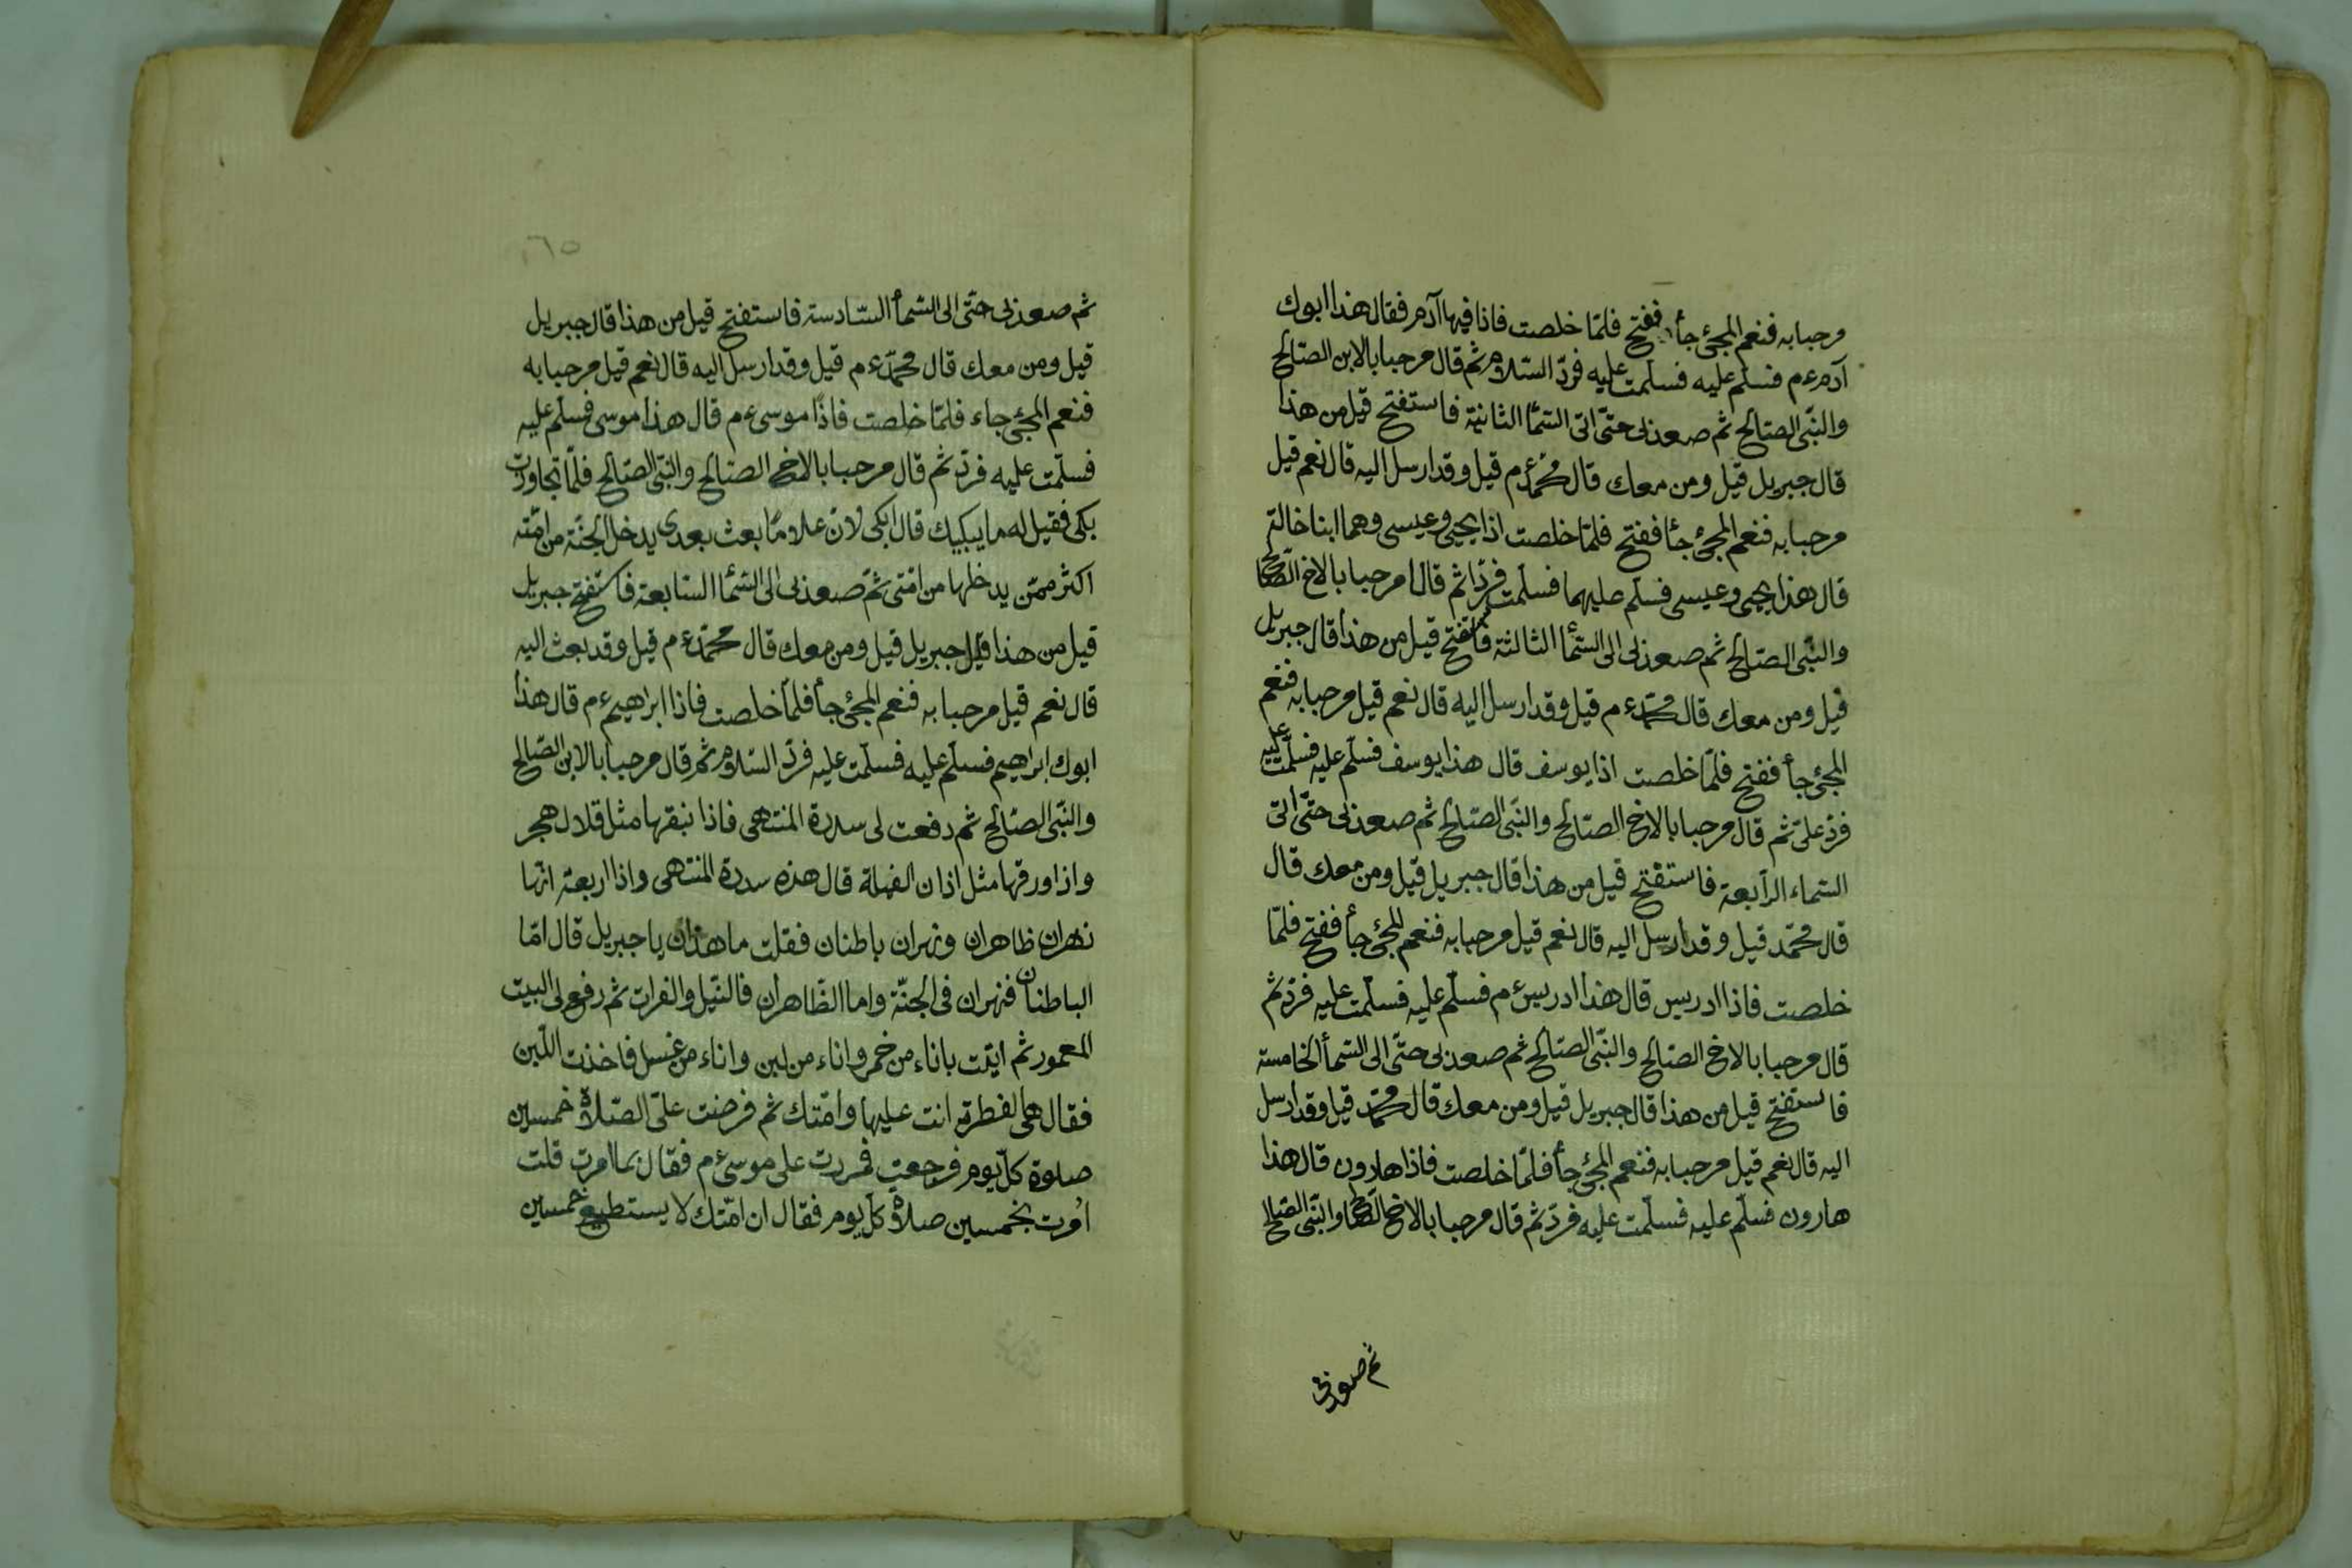 مرحبا به فنعم المجئ جأ ففتح فلمّا خلصت فاذا فيها آدم فقال هذا ابوك
آدم ءم فسلّم عليه فسلّمت عليه فردّ السّلام ثم قال مرحبا بالابن الصّالح
والنّبى الصّالح ثم صعد بى حتّى اتى السّمأ الثانية فاستفتح قيل من هذا
قال جبريل قيل ومن معك قال محمّد ءم قيل وقد ارسل اليه قال نعم قيل
مرحبا به فنعم المجئ جأ ففتح فلمّا خلصت اذا يحيى وعيسى وهما ابنا خالة
قال هذا يحيى وعيسى فسلّم عليهما فسلّمت فردّا ثم قالا مرحبا بالاخ الصّالح
والنّبى الصّالح ثم صعد بى الى السّمأ الثالثة فاستفتح قيل من هذا قال جبريل
قيل ومن معك قال محمّد ءم قيل وقد ارسل اليه قال نعم قيل مرحبا به فنعم
المجئ جأ ففتح فلمّا خلصت اذا يوسف قال هذا يوسف فسلّم عليه فسلّمت عليه
فردّ علىّ ثم قال مرحبا بالاخ الصّالح والنّبى الصّالح ثم صعد بى حتّى اتى
السّماء الرّابعة فاستفتح قيل من هذا قال جبريل قيل ومن معك قال
قال محمّد قيل وقد ارسل اليه قال نعم قيل مرحبا به فنعم المجئ جأ ففتح فلمّا
خلصت فاذا ادريس قال هذا ادريس ءم فسلّم عليه فسلّمت عليه فردّ ثم
قال مرحبا بالاخ الصّالح والنّبى الصّالح ثم صعد بى حتّى الى السّمأ الخامسة
فاستفتح قيل من هذا قال جبريل قيل ومن معك قال محمّد قيل وقد ارسل
اليه قال نعم قيل مرحبا به فنعم المجئ جأ فلمّا خلصت فاذا هارون قال هذا
هارون فسلّم عليه فسلّمت عليه فردّ ثم قال مرحبا بالاخ الصّالح والنّبى الصّالح
ثم صعد بى
٦٥
ثم صعد بى حتّى الى السّمأ السّادسة فاستفتح قيل من هذا قال جبريل
قيل ومن معك قال محمّد ءم قيل وقد ارسل اليه قال نعم قيل مرحبا به
فنعم المجئ جاء فلمّا خلصت فاذا موسى ءم قال هذا موسى فسلّم عليه
فسلّمت عليه فردّ ثم قال مرحبا بالاخ الصّالح والنّبى الصّالح فلمّا تجاوزت
بكى فقيل له ما يبكيك قال ابكى لانّ غلامًا بعث بعدى يدخل الجنّة من امّته
اكثر ممّن يدخلها من امّتى ثم صعد بى الى السّمأ السّابعة فاستفتح جبريل
قيل من هذا قال جبريل قيل ومن معك قال محمّد ءم قيل وقد بعث اليه
قال نعم قيل مرحبا به فنعم المجئ جأ فلمّا خلصت فاذا ابراهيم ءم قال هذا
ابوك ابراهيم فسلّم عليه فسلّمت عليه فردّ السّلام ثم قال مرحبا بالابن الصّالح
والنّبى الصّالح ثم دفعت لى سدرة المنتهى فاذا نبقها مثل قلال هجر
واذا ورقها مثل اذان الفيلة قال هذه سدرة المنتهى واذا اربعة انها
نهران ظاهران ونهران باطنان فقلت ما هذان يا جبريل قال امّا
الباطنان فنهران فى الجنّة واما الظّاهران فالنّيل والفرات ثم رفع لى البيت
المعمور ثم اتيت باناء من خمر واناء من لبن واناء من عسل فاخذت اللّبن
فقال هى الفطرة انت عليها وامّتك ثم فرضت علىّ الصّلاة خمسين
صلوة كلّ يوم فرجعت فمررت على موسى ءم فقال بما امرت قلت
اُمرت بخمسين صلاة كلّ يوم فقال ان امّتك لا يستطيع خمسين